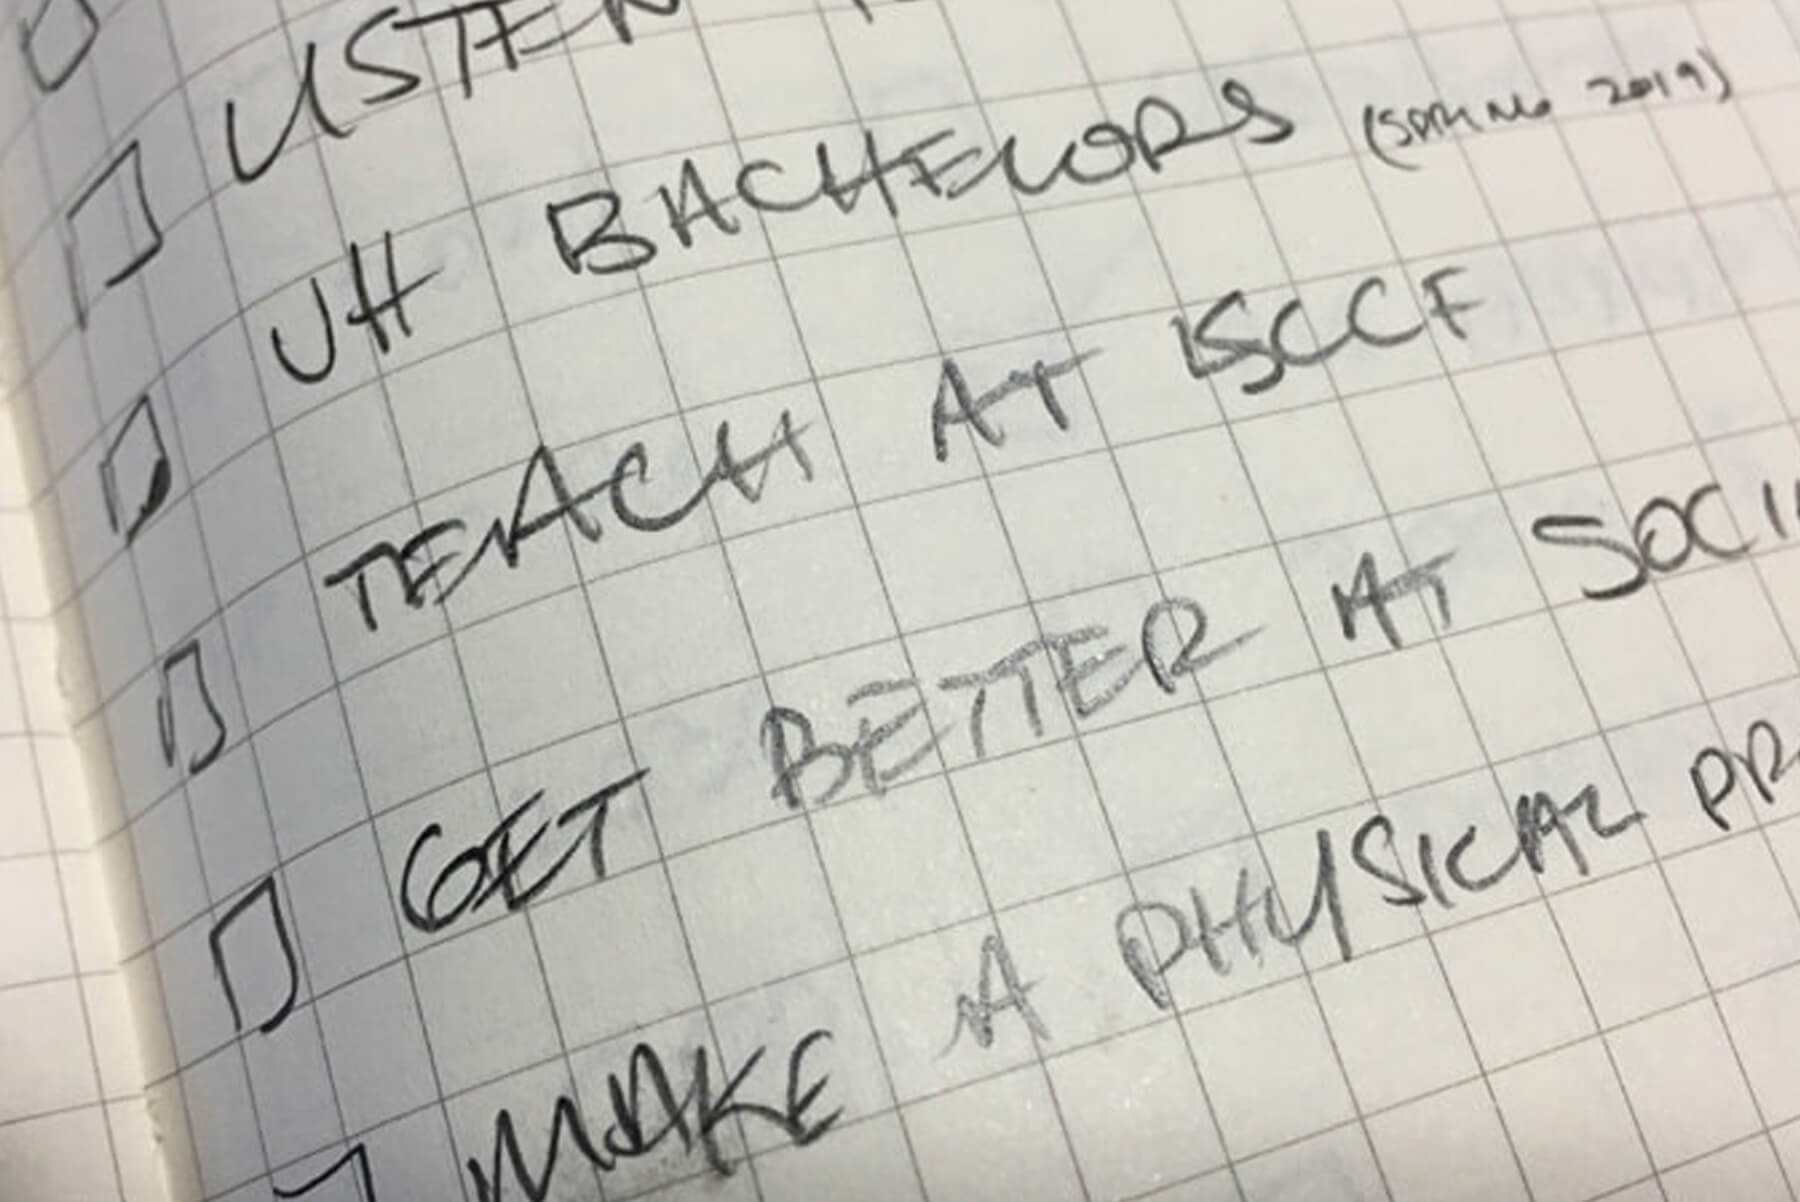 LISTEN
UH BACHELORS (SPRING 2019)
TEACH AT ISCCF
GET BETTER AT SOCI
MAKE A PHYSICAL PR